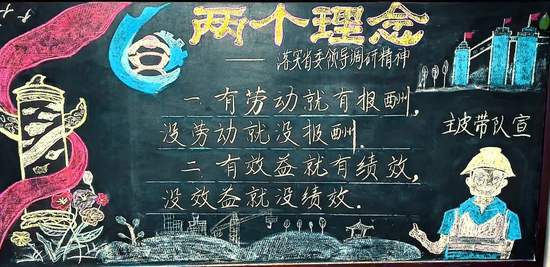 两个理念
——落实省委领导调研精神
一有劳动就有报酬，
没劳动就没报酬.
二有效益就有绩效，
没效益就没绩效.
主皮带队宣